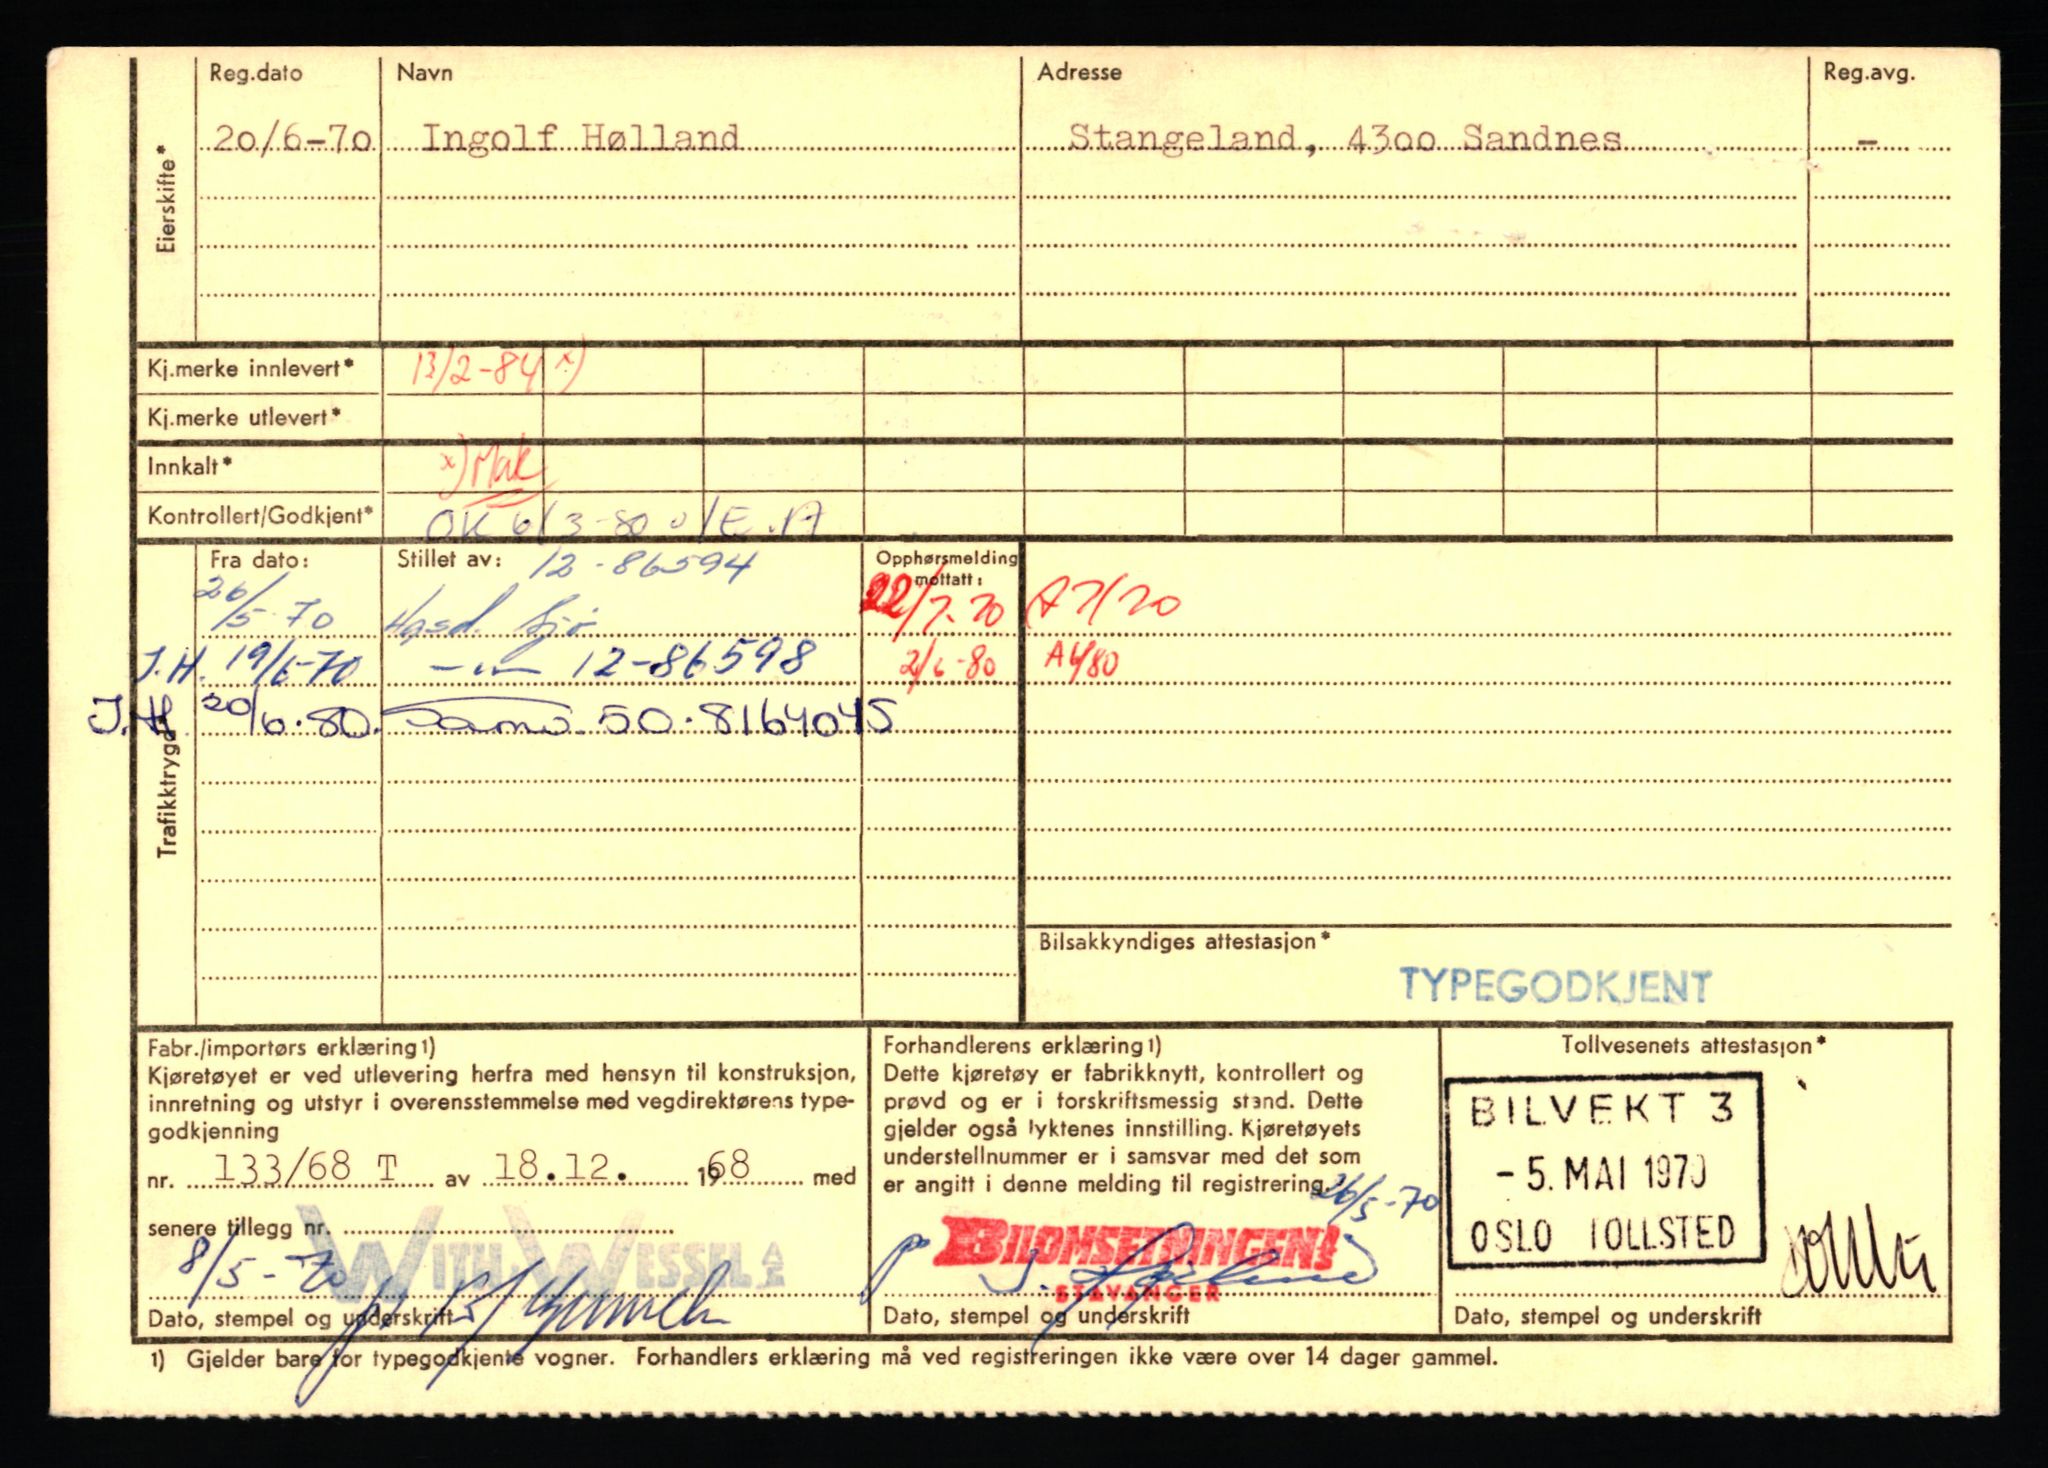 Reg.dato Navn Adresse Reg.avg.
Eierskifte*
20/6-70 Ingolf Hølland Stangeland, 4300 Sandnes -
Kj.merke innlevert* 13/2-84 x)
Kj.merke utlevert*
Innkalt* x) Mak
Kontrollert/Godkjent* OK 6/3-80 E.A
Trafikktrygd
Fra dato: Stillet av: 12-86594 Opphørsmelding mottatt:
26/5-70 22/7-70 A7/70
J.H. 19/6-70 -"- 12-86598 2/6-80 A6/80
J.H 20/6-80. Samv. 50.8164045
Bilsakkyndiges attestasjon*
TYPEGODKJENT
Fabr./importørs erklæring 1)
Kjøretøyet er ved utlevering herfra med hensyn til konstruksjon,
innretning og utstyr i overensstemmelse med vegdirektørens type-
godkjenning
nr. 133/68 T av 18.12. 1968 med
senere tillegg nr.
WITH WESSEL A/S
8/5-70
Dato, stempel og underskrift
Forhandlerens erklæring 1)
Dette kjøretøy er fabrikknytt, kontrollert og
prøvd og er i forskriftsmessig stand. Dette
gjelder også lyktenes innstilling. Kjøretøyets
understellnummer er i samsvar med det som
er angitt i denne melding til registrering.
26/5-70
BILOMSETNINGEN A/S
STAVANGER
Dato, stempel og underskrift
Tollvesenets attestasjon*
BILVEKT 3
-5. MAI 1970
OSLO TOLLSTED
Dato, stempel og underskrift
1) Gjelder bare for typegodkjente vogner. Forhandlers erklæring må ved registreringen ikke være over 14 dager gammel.